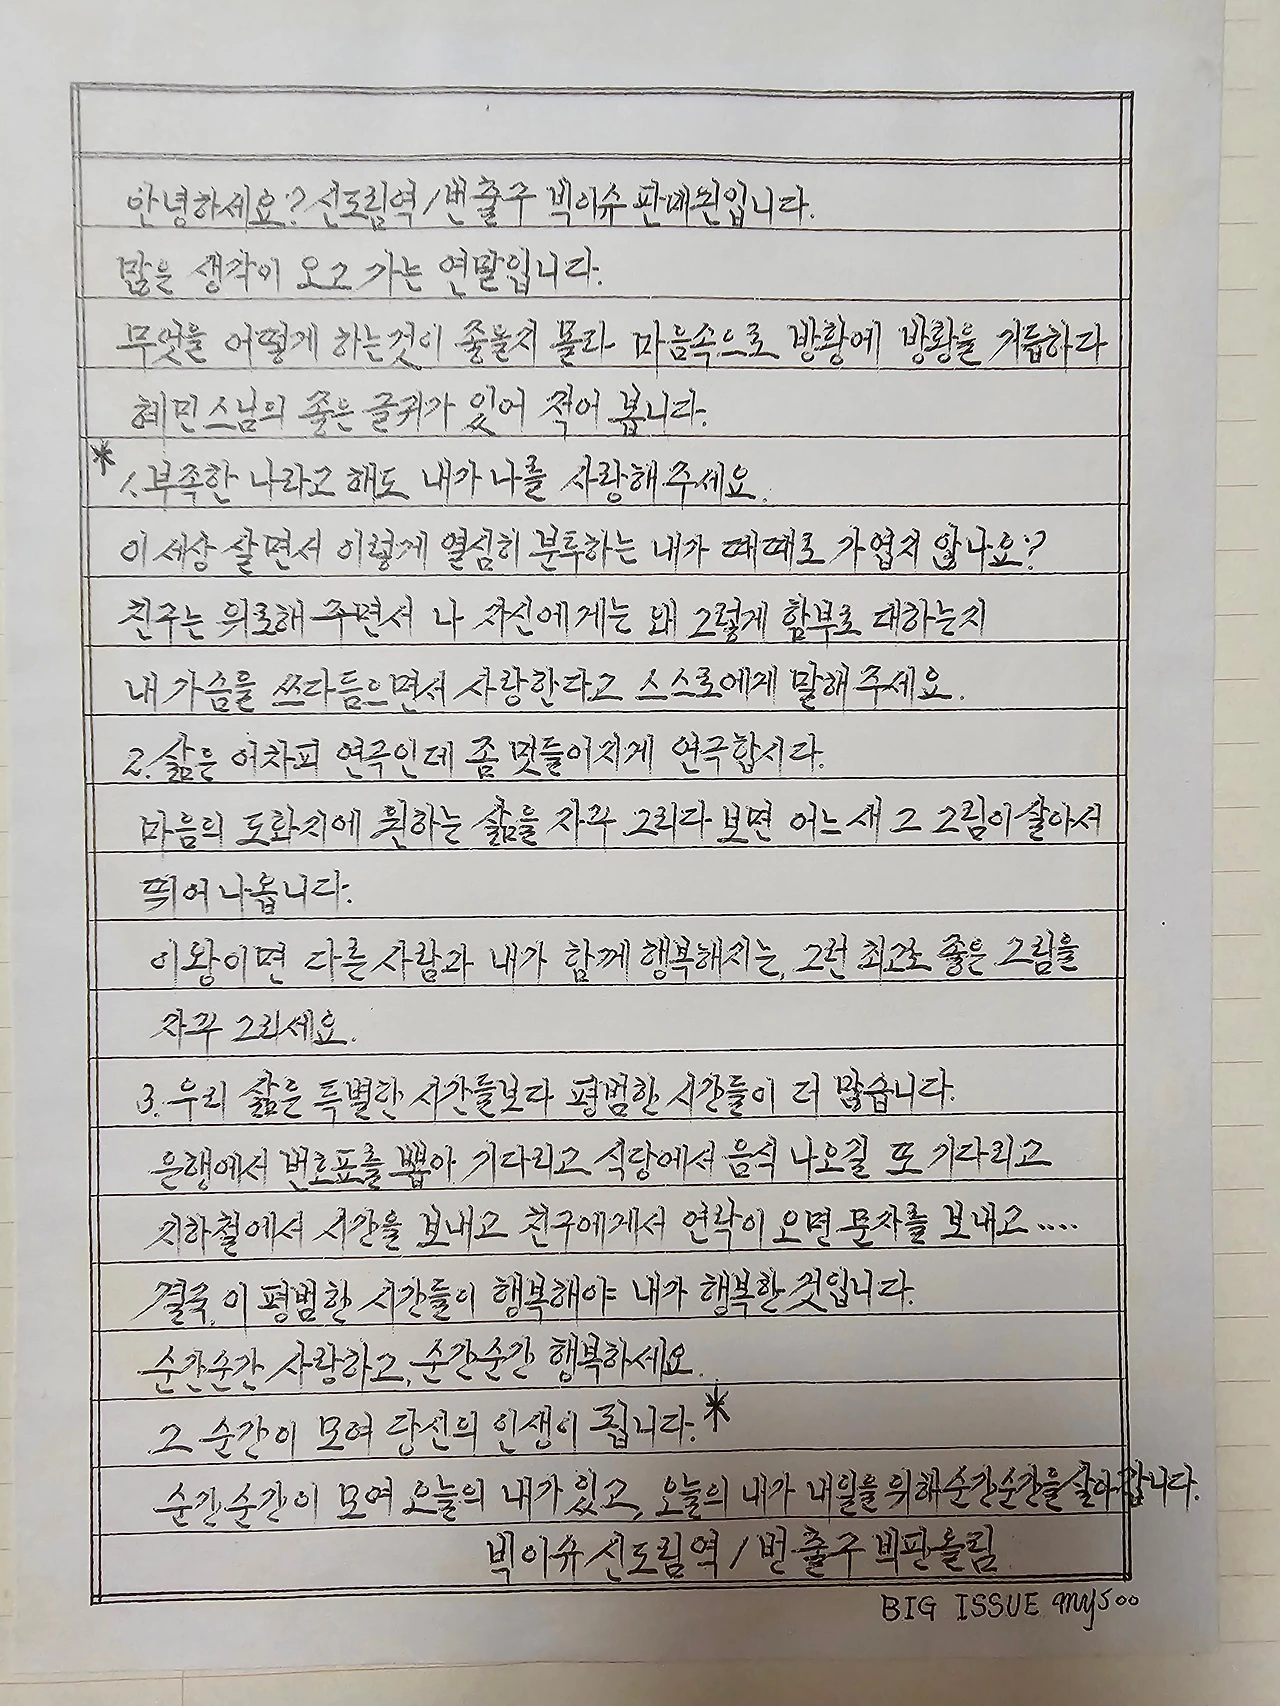 안녕하세요? 신도림역 1번출구 빅이슈 판매원입니다.
많은 생각이 오고 가는 연말입니다.
무엇을 어떻게 하는것이 좋을지 몰라 마음속으로 방황에 방황을 거듭하다
혜민스님의 좋은 글귀가 있어 적어 봅니다.
* 1. 부족한 나라고 해도 내가 나를 사랑해 주세요.
이 세상 살면서 이렇게 열심히 분투하는 내가 때때로 가엽지 않나요?
친구는 위로해 주면서 나 자신에게는 왜 그렇게 함부로 대하는지
내 가슴을 쓰다듬으면서 사랑한다고 스스로에게 말해 주세요.
2. 삶은 어차피 연극인데 좀 멋들어지게 연극합시다.
마음의 도화지에 원하는 삶을 자꾸 그리다 보면 어느새 그 그림이 살아서
뛰어 나옵니다.
이왕이면 다른 사람과 내가 함께 행복해지는, 그런 최고로 좋은 그림을
자꾸 그리세요.
3. 우리 삶은 특별한 시간들보다 평범한 시간들이 더 많습니다.
은행에서 번호표를 뽑아 기다리고 식당에서 음식 나오길 또 기다리고
지하철에서 시간을 보내고 친구에게서 연락이 오면 문자를 보내고 ....
결국, 이 평범한 시간들이 행복해야 내가 행복한 것입니다.
순간순간 사랑하고, 순간순간 행복하세요.
그 순간이 모여 당신의 인생이 됩니다. *
순간순간이 모여 오늘의 내가 있고, 오늘의 내가 내일을 위해 순간순간을 살아갑니다.
빅이슈 신도림역 1번출구 빅판올림
BIG ISSUE my500